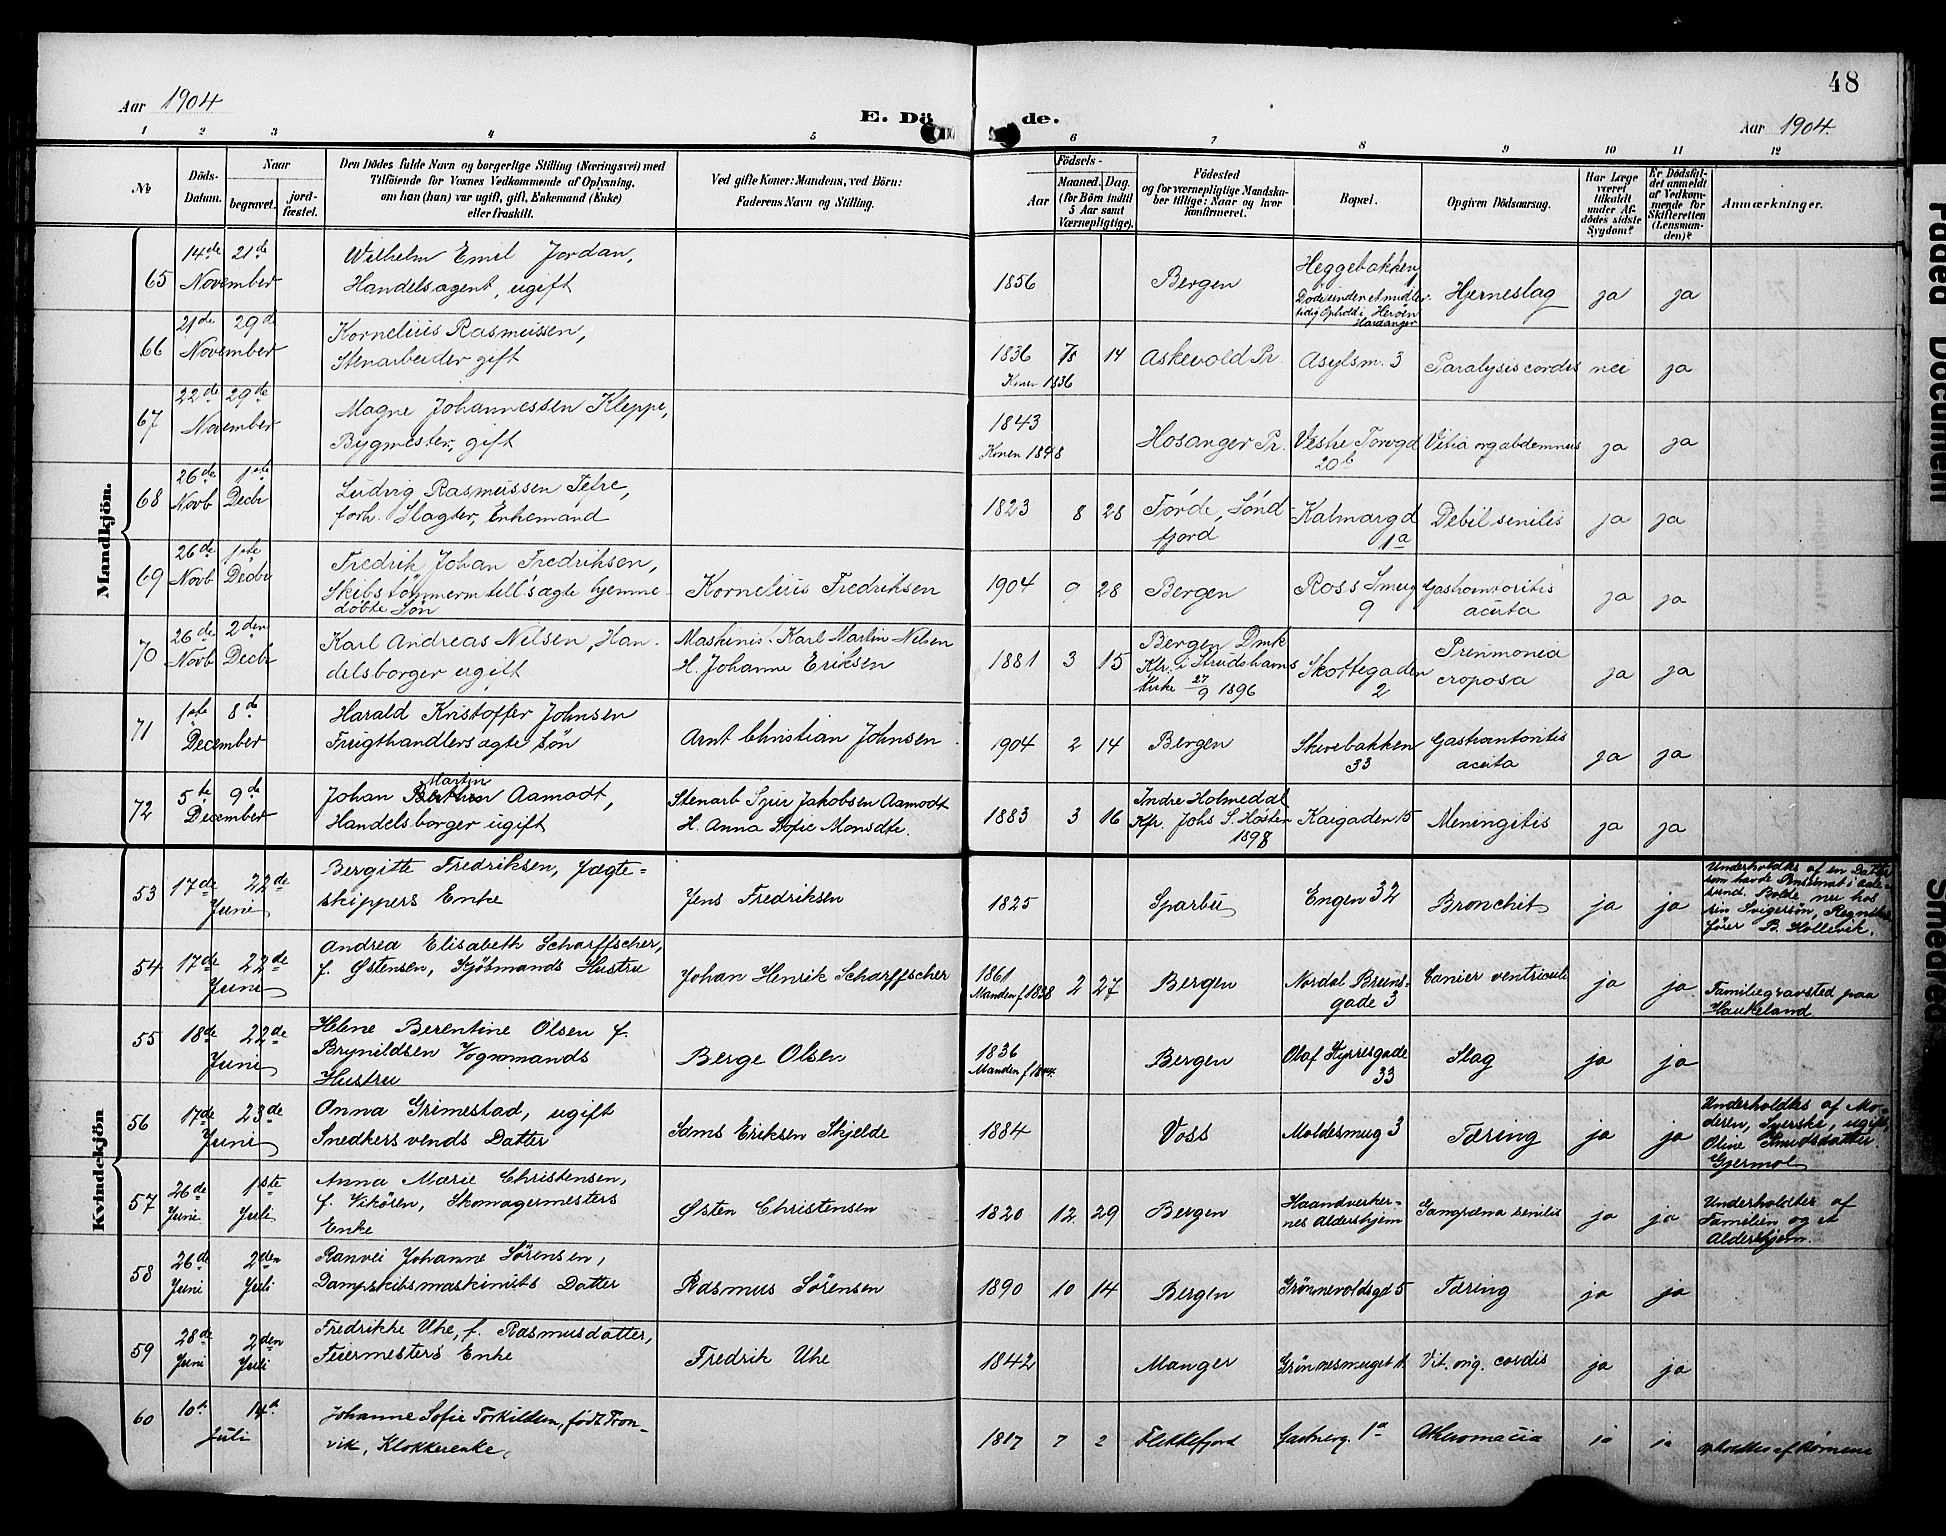 48
Aar 1904
E. Dö de.
Aar 1904.
1 2 3 4 5 6 7 8 9 10 11 12
№
Döds-
Datum.
Naar
begravet.
jord-
fæstet.
Den Dödes fulde Navn og borgerlige Stilling (Næringsvei) med
Tilföiende for Voxnes Vedkommende af Oplysning,
om han (hun) var ugift, gift, Enkemand (Enke)
eller fraskilt.
Ved gifte Koner: Mandens, ved Börn:
Faderens Navn og Stilling.
Födsels-
Aar
Maaned. Dag.
(for Börn indtil
5 Aar samt
Værnepligtige).
Födested
og for værnepligtige Mandska-
ber tillige: Naar og hvor
konfirmeret.
Bopæl.
Opgiven Dödsaarsag.
Har Læge
været
tilkaldt
under Af-
dödes sidste
Sygdom?
Er Dödsfal-
det anmeldt
af Vedkom-
mende for
Skifteretten
(Lensman-
den)?
Anmærkninger.
Mandkjön.
65
14de 21de
November
Wilhelm Emil Jordan,
Handelsagent, ugift
1856
Bergen
Heggebakken
Döde under et midler-
tidig Ophold i Herøen
Hardanger
Hjerneslag
ja
ja
66
21de 29d
November
Kornelius Rasmussen,
Stenarbeider gift
1836 14
Konen 1836
Askevold Pr.
Asylsm. 3
Paralysis cordis
nei
ja
67
22de 29de
November
Magne Johannessen Kleppe,
Bygmester, gift
1843
Konen 1848
Hosanger Pr.
Vestre Torvgd
20b
Vitia org abdomnus
ja
ja
68
26de 1ste
Novb Decbr
Ludvig Rasmussen Tetre,
forh. Slagter, Enkemand
1823 8 28
Førde, Sönd-
fjord
Kalmargd
1a
Debil senilis
ja
ja
69
26de 1ste
Novb Decbr
Fredrik Johan Fredriksen,
Skibstömmerm till's ægte hjemme-
döbte Søn
Kornelius Fredriksen
1904 9 28
Bergen
Ross Smug
9
Gastroenteritis
acuta
ja
ja
70
26de 2den
Novb Decbr
Karl Andreas Nilsen, Han-
delsborger ugift
Maskinist Karl Martin Nilsen
H. Johanne Eriksen
1881 3 15
Bergen Dmk
Kfr. i Strudshavns
Kirke 27/9 1896
Skottegaden
2
Pneumonia
croposa
ja
ja
71
1ste 8de
December
Harald Kristoffer Johnsen
Frugthandlers ægte Søn
Arnt Christian Johnsen
1904 2 14
Bergen
Skivebakken
33
Gastroenteritis
acuta
ja
ja
72
5te 9de
December
Martin
Johan Aamodt,
Handelsborger ugift
Stenarb Sjur Jakobsen Aamodt
H. Anna Sofie Monsdtr.
1883 3 16
Indre Holmedal
Kfr. Johs S. Høster
1898
Kaigaden 15
Meningitis
ja
ja
Kvindekjön
53
17de 22de
Juni
Bergitte Fredriksen, Jægte-
skippers Enke
Jens Fredriksen
1825
Sparbu
Engen 32
Bronchit
ja
ja
Underholdtes af en Datter
som havde Pensionat i Aale-
sund. Bode nu hos
sin Svigersøn, Regnskabs-
fører B. Kollevik.
54
17de 22de
Juni
Andrea Elisabeth Scharffscher,
f. Østensen, Kjöbmands Hustru
Johan Henrik Scharffscher
1861 2 27
Manden f 1838
Bergen
Nordal Bruns-
gade 3
Cancer ventriculi
ja
ja
Familiegravsted paa
Haukeland
55
18de 22de
Juni
Helene Berentine Olsen f.
Brynildsen Vognmands
Hustru
Berge Olsen
1836
Manden f 1844
Bergen
Olaf Kyrresgade
33
Slag
ja
ja
56
17de 23de
Juni
Anna Grimestad, ugift
Snedkersvends Datter
Sams Eriksen Skjelde
1884
Voss
Moldesmug 3
Tæring
ja
ja
Underholdtes af Mo-
deren, Syerske, ugift,
Oline Knudsdatter
Gjermo
57
26de 1ste
Juni Juli
Anna Marie Christensen,
f. Vikören, Skomagermesters
Enke
Østen Christensen
1820 12 29
Bergen
Haandverker-
nes Aldershjem
Gangræna senilis
ja
ja
Underholdtes af
Familien og et
Aldershjem.
58
26de 2den
Juni Juli
Ranvei Johanne Sörensen,
Dampskibsmaskinists Datter
Rasmus Sörensen
1890 10 14
Bergen
Grönnevoldsgd 5
Tæring
ja
ja
59
28de 2den
Juni Juli
Fredrikke Uhe, f. Rasmusdatter,
Feiermesters Enke
Fredrik Uhe
1842
Manger
Grönnesmuget 1.
Vit. org. cordis
ja
ja
60
10d 14d
Juli
Johanne Sofie Torkildsen, født Tron-
vik, Klokkerenke,
1817 7 2
Flekkefjord
1a
ja
ja
af Börnene
Faded Document
Smeared